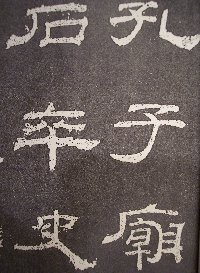 孔子廟
石卒史